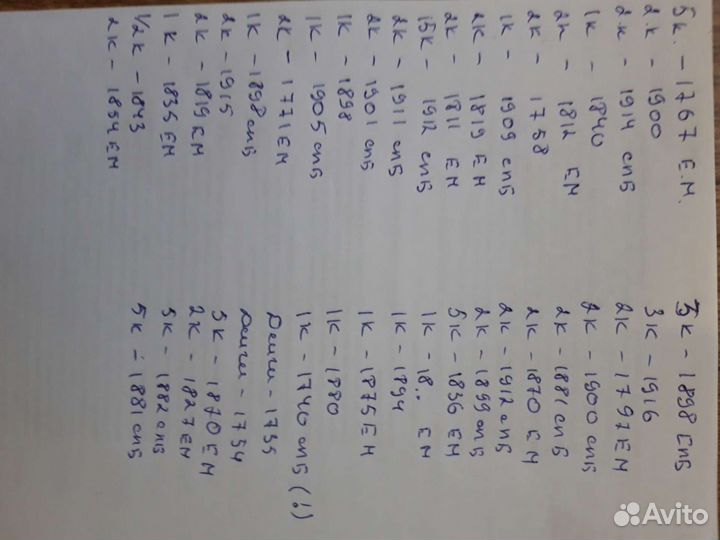 5к. - 1767 Е.М.
2.к - 1900
2.к - 1914 спб
1к - 1840
2к - 1812 ЕМ
2к - 1758
1к - 1909 спб
2к - 1819 ЕМ
2к - 1811 ЕМ
15к - 1912 спб
2к - 1911 спб
2к - 1901 спб
1к - 1898
1к - 1905 спб
2к - 1771 ЕМ
1к - 1898 спб
2к - 1915
2к - 1819 ЕМ
1к - 1835 ЕМ
1/2к - 1843
2к - 1854 ЕМ
5к - 1898 спб
3к - 1916
2к - 1797 ЕМ
2к - 1900 спб
2к - 1881 спб
2к - 1870 ЕМ
2к - 1912 спб
2к - 1899 спб
5к - 1836 ЕМ
1к - 18.. ЕМ
1к - 1894
1к - 1875 ЕМ
1к - 1880
1к - 1740 спб (!)
Деньги - 1735
Деньги - 1754
5к - 1870 ЕМ
2к - 1827 ЕМ
5к - 1882 спб
5к - 1881 спб
Avito